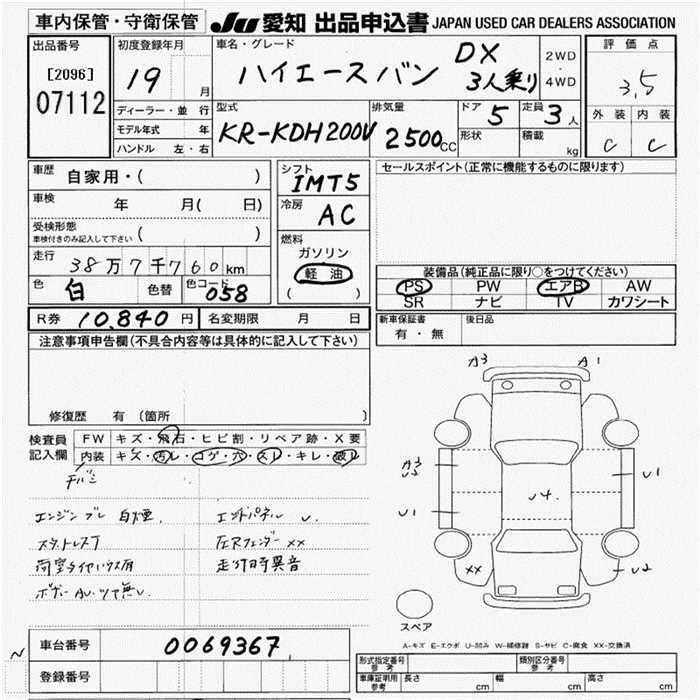 車内保管・守衛保管 JU 愛知 出品申込書 JAPAN USED CAR DEALERS ASSOCIATION
出品番号
[2096]
07112
初度登録年月
19 月
車名・グレード
ハイエースバン DX 3人乗り
2WD
・
4WD
評価点
3.5
外装 内装
C C
ディーラー・並行
モデル年式 年
ハンドル 左・右
型式
KR-KDH200V
排気量
2500cc
ドア
5
形状
定員
3人
積載
kg
車歴
自家用・( )
車検 年 月( 日)
受検形態
車検付きのみ記入して下さい ( )
走行 38万7千760km
色 白 色替 色コード 058
シフト
IMT5
冷房
AC
燃料
ガソリン
軽油
( )
セールスポイント(正常に機能するものに限ります)
装備品(純正品に限り○をつけてください)
PS PW エアB AW
SR ナビ TV カワシート
R券 10,840円 名変期限 月 日
新車保証書
有・無
後日品
注意事項申告欄(不具合内容等は具体的に記入して下さい)
修復歴 有(箇所
検査員
記入欄
FW キズ・飛石・ヒビ割・リペア跡・X要
内装 キズ・汚レ・コゲ・穴・スレ・キレ・破レ
エンジンブレ 白煙
エンドパネル U
スタットレス
左Rフェンダー XX
荷室タイヤハウス有
走行時異音
A3
A1
A3
U5
U1
U1
U4.
XX
U2
スペア
A-キズ E-エクボ U-凹み W-補修跡 S-サビ C-腐食 XX-交換済
車台番号 0069367
登録番号
形式指定番号
参考
類別区分番号
参考
車庫証明用
参考
長さ cm 幅 cm 高さ cm